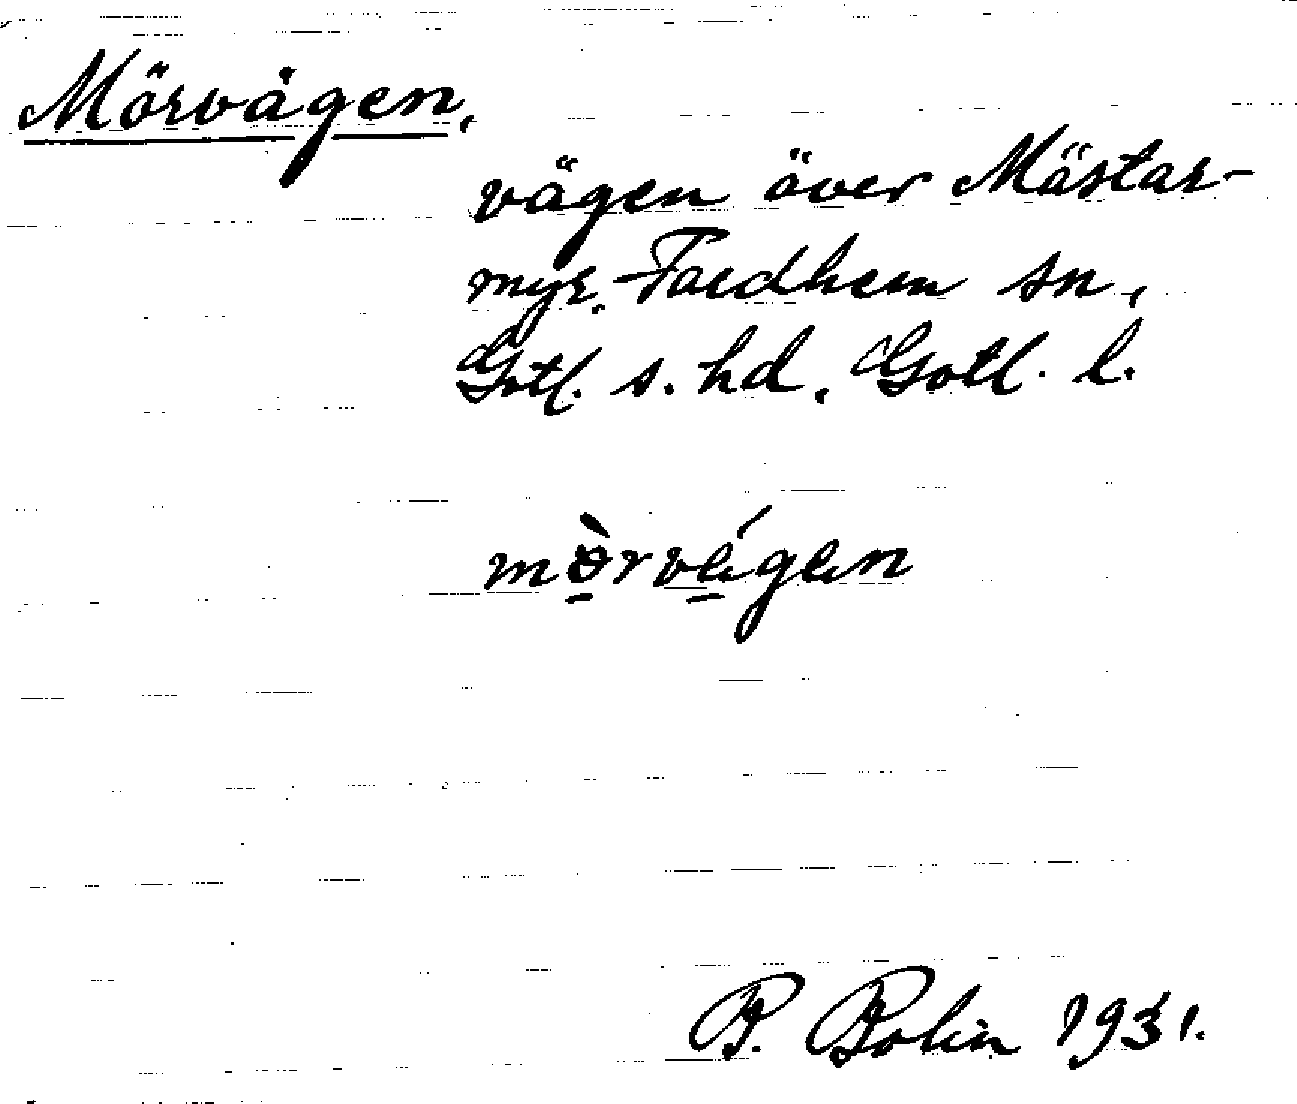 Mörvägen,
vägen över Mästar-
myr, Fardhem sn,
Gotl. s. hd, Gotl. l.
mörvägen
P. Bolin 1931.